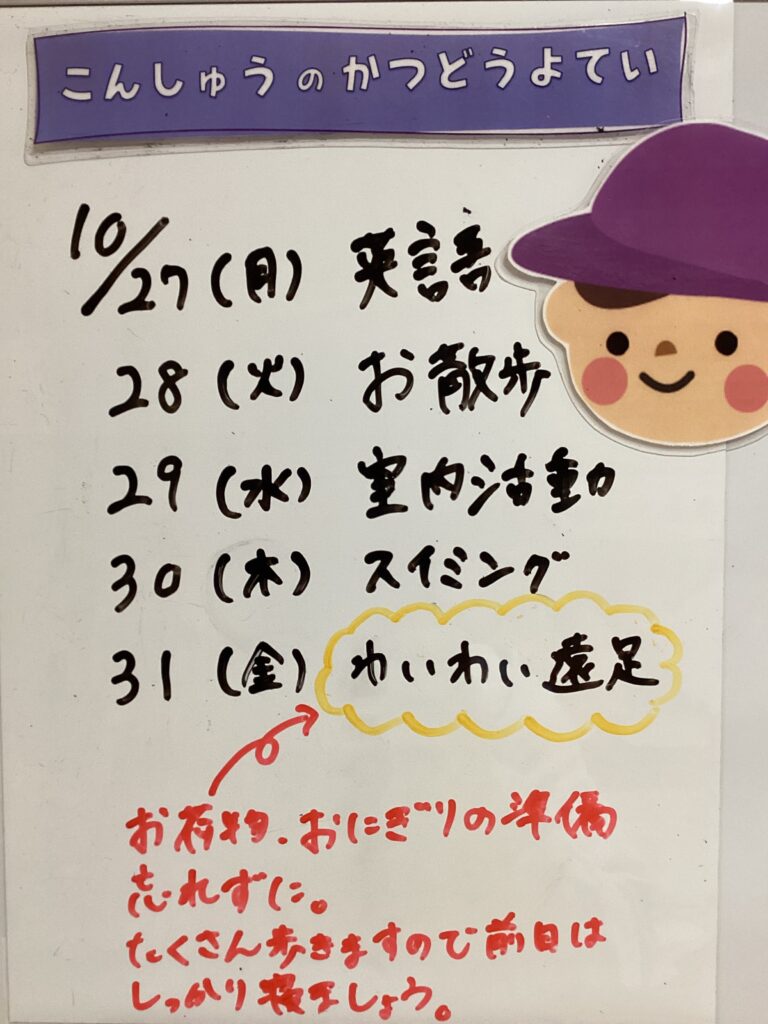 こんしゅうのかつどうよてい
10/27(月) 英語
28(火) お散歩
29(水) 室内活動
30(木) スイミング
31(金) わいわい遠足
お荷物、おにぎりの準備
忘れずに。
たくさん歩きますので前日は
しっかり寝ましょう。